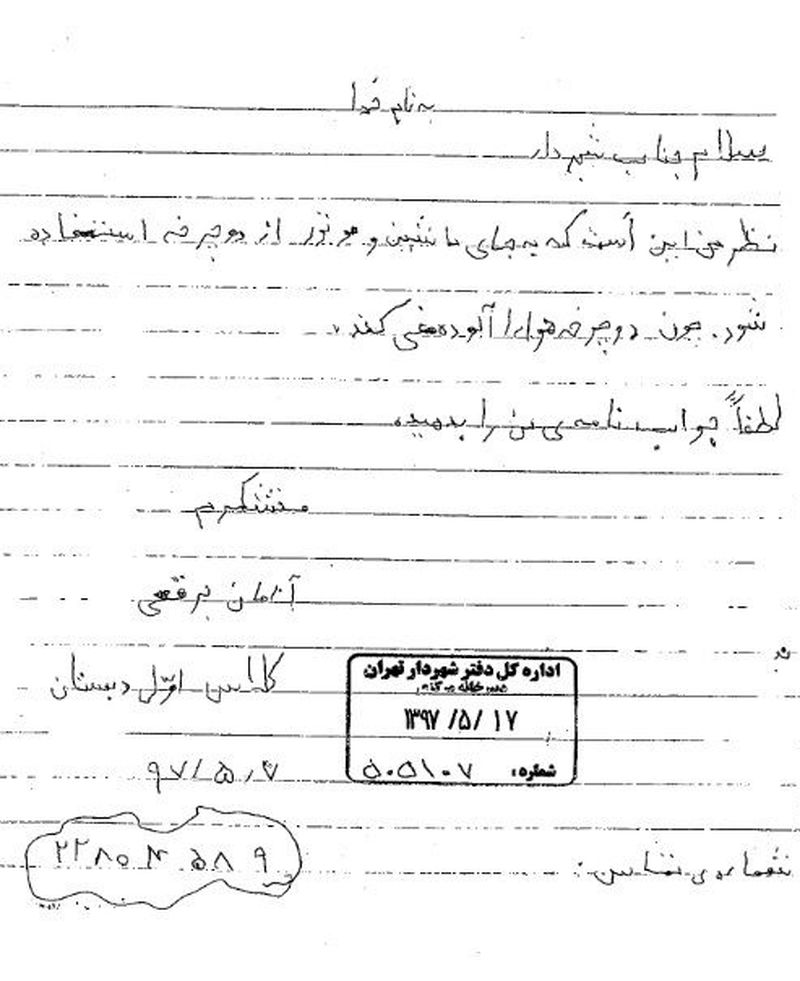 به نام خدا
سلام جناب شهردار
نظر من این است که به جای ماشین و موتور از دوچرخه استفاده
شود. چون دوچرخه هوا را آلوده نمی کند.
لطفاً جواب نامه ی من را بدهید.
متشکرم
آرمان برقعی
کلاس اوّل دبستان
اداره کل دفتر شهردار تهران
۱۳۹۷ /۵/ ۱۷
شماره: ۵۰۵۱۰۷
۹۷/۵/۷
شماره ی تماس: